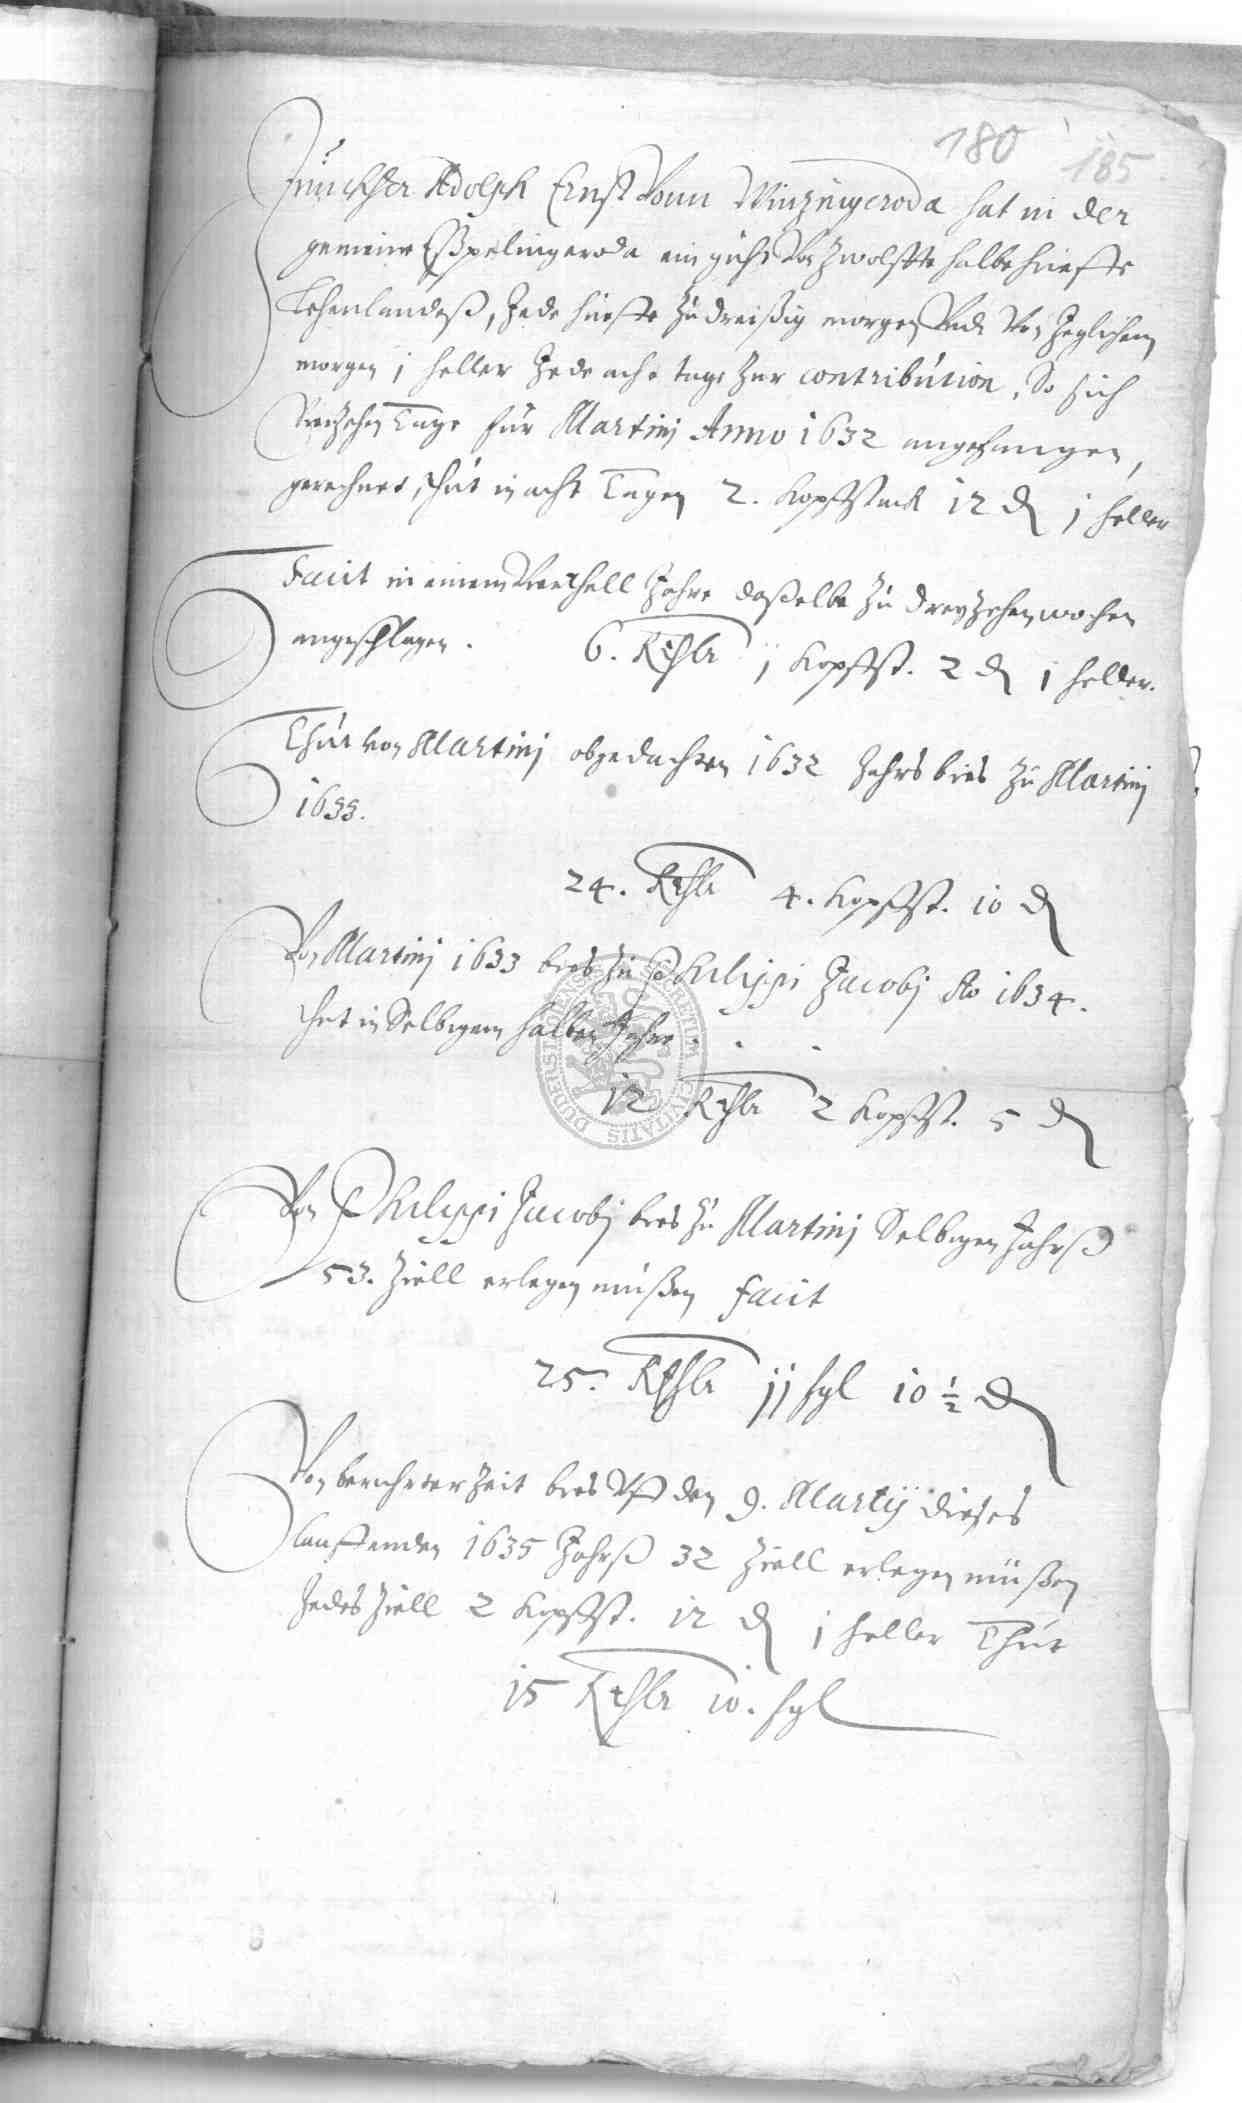 180 185
Jünckher Adolph Ernst Vonn Winzingeroda hat in der
gemeine Eßpelingeroda Von Zwolffte halbe hueffe
Lehenlandeß, Jede hueffe Zu dreißig morgen Von Jeglichem
morgen 1 heller Jede acht tage Zur contribution, So sich
Viertzehen Tage für Martinj Anno 1632 angefangen,
gerechnet, thut in acht Tagen 2. Kopffstuck 12 d 1 heller
Facit in einem Viertheil Jahre daßelbe Zu dreyzehen wochen
angeschlagen. 6. Rthlr 1 Kopffst. 2 d 1 heller.
Thut von Martinj obgedachten 1632 Jahrs bies Zu Martinj
1633.
24. Rthlr 4. Kopffst. 10 d
Von Martinj 1633 bies Zu Philippi Jacobj Ao 1634.
thut in Selbigem halben Jahre . . .
12 Rthlr 2 Kopffst. 5 d
Von Philippi Jacobj bies Zu Martinj Selbigen Jahrß
53. Ziell erlegen müßen facit
25. Rthlr 11 sgl 10 1/2 d
Von berührter Zeit bies Vff den 9. Martij dieses
lauffenden 1635 Jahrß 32 Ziell erlegen müßen
Jedes Ziell 2 Kopffst. 12 d 1 heller Thut
15 Rthlr 10. sgl
SECRETUM CIVITATIS